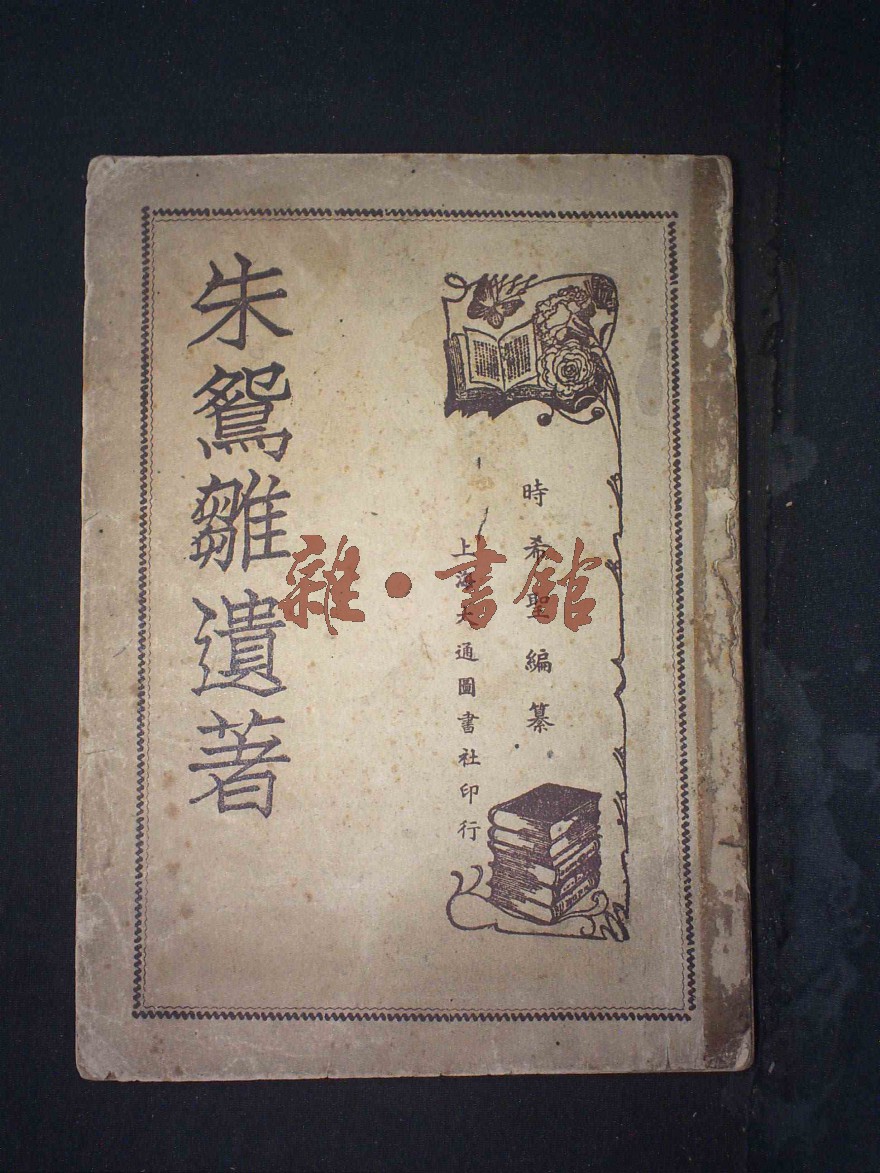 時希聖編纂
上海大通圖書社印行
朱鴛雛遺著
雜·書館